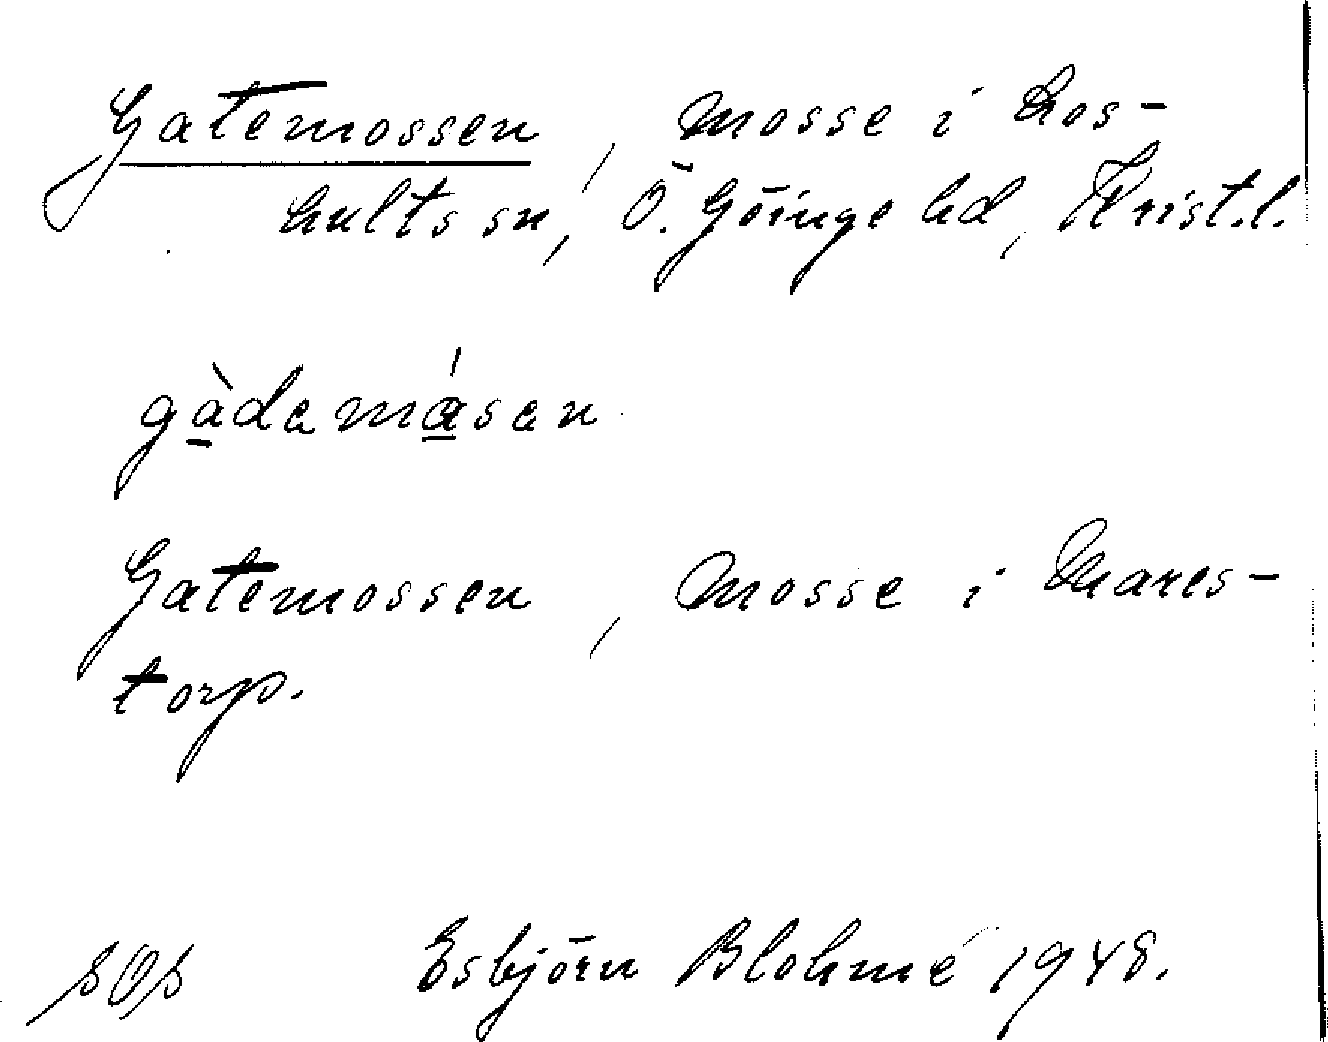 Gatemossen, mosse i Los-
hults sn, Ö. Göinge hd, Krist.l.
gàdamásan
Gatemossen, mosse i Mares-
torp.
Esbjörn Blohmé 1948.